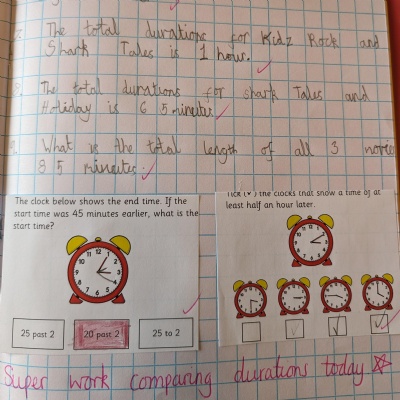 7. The total durations for Kidz Rock and
Shark Tales is 1 hour.
8. The total durations for Shark Tales and
Holiday is 65 minutes
9. What is the total length of all 3 movie
85 minutes.
The clock below shows the end time. If the
start time was 45 minutes earlier, what is the
start time?
12 1 2 3 4 5 6 7 8 9 10 11
25 past 2
20 past 2
25 to 2
Tick (✓) the clocks that show a time of at
least half an hour later.
Super work comparing durations today